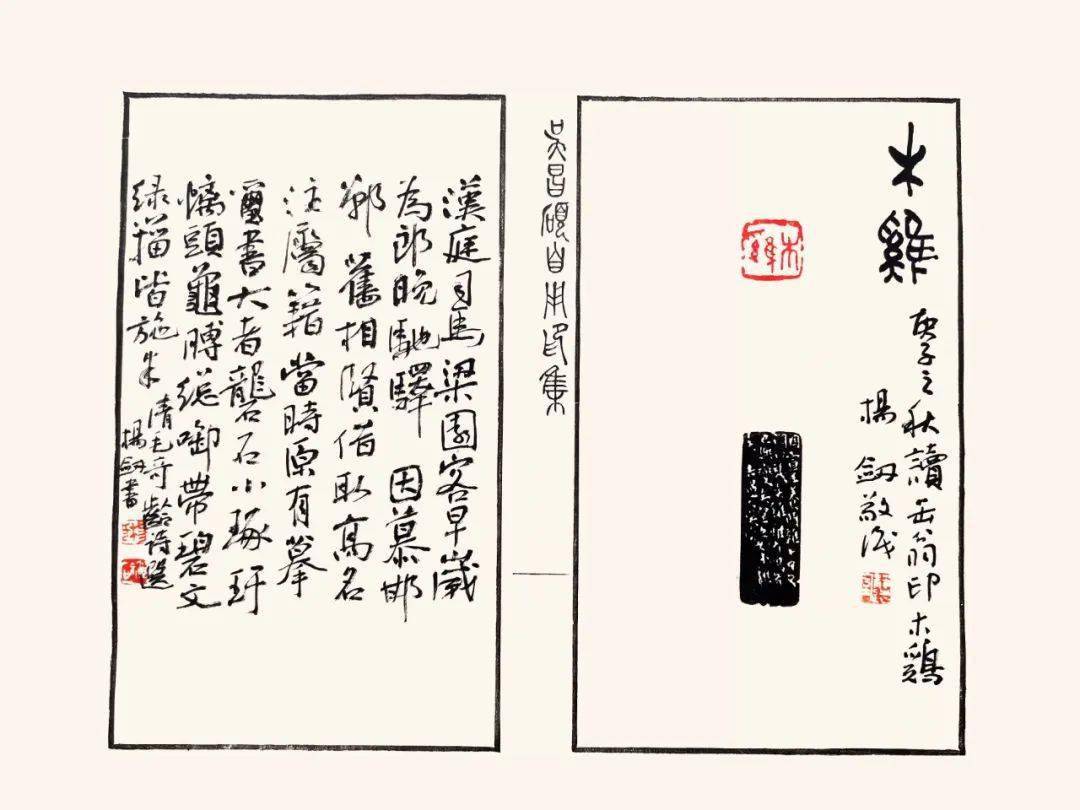 木雞
庚子之秋讀缶翁印木鷄
楊劔敬識
木雞
吳昌碩自用印集
漢庭司馬梁園客早歲
為郎晚馳驛因慕邯
鄲舊相賢借取高名
注屬籍當時原有摹
璽書大者龍石小琢玗
螭頭龜膊總啣帶碧文
綠籀皆施朱清毛奇齡詩選
楊劔書